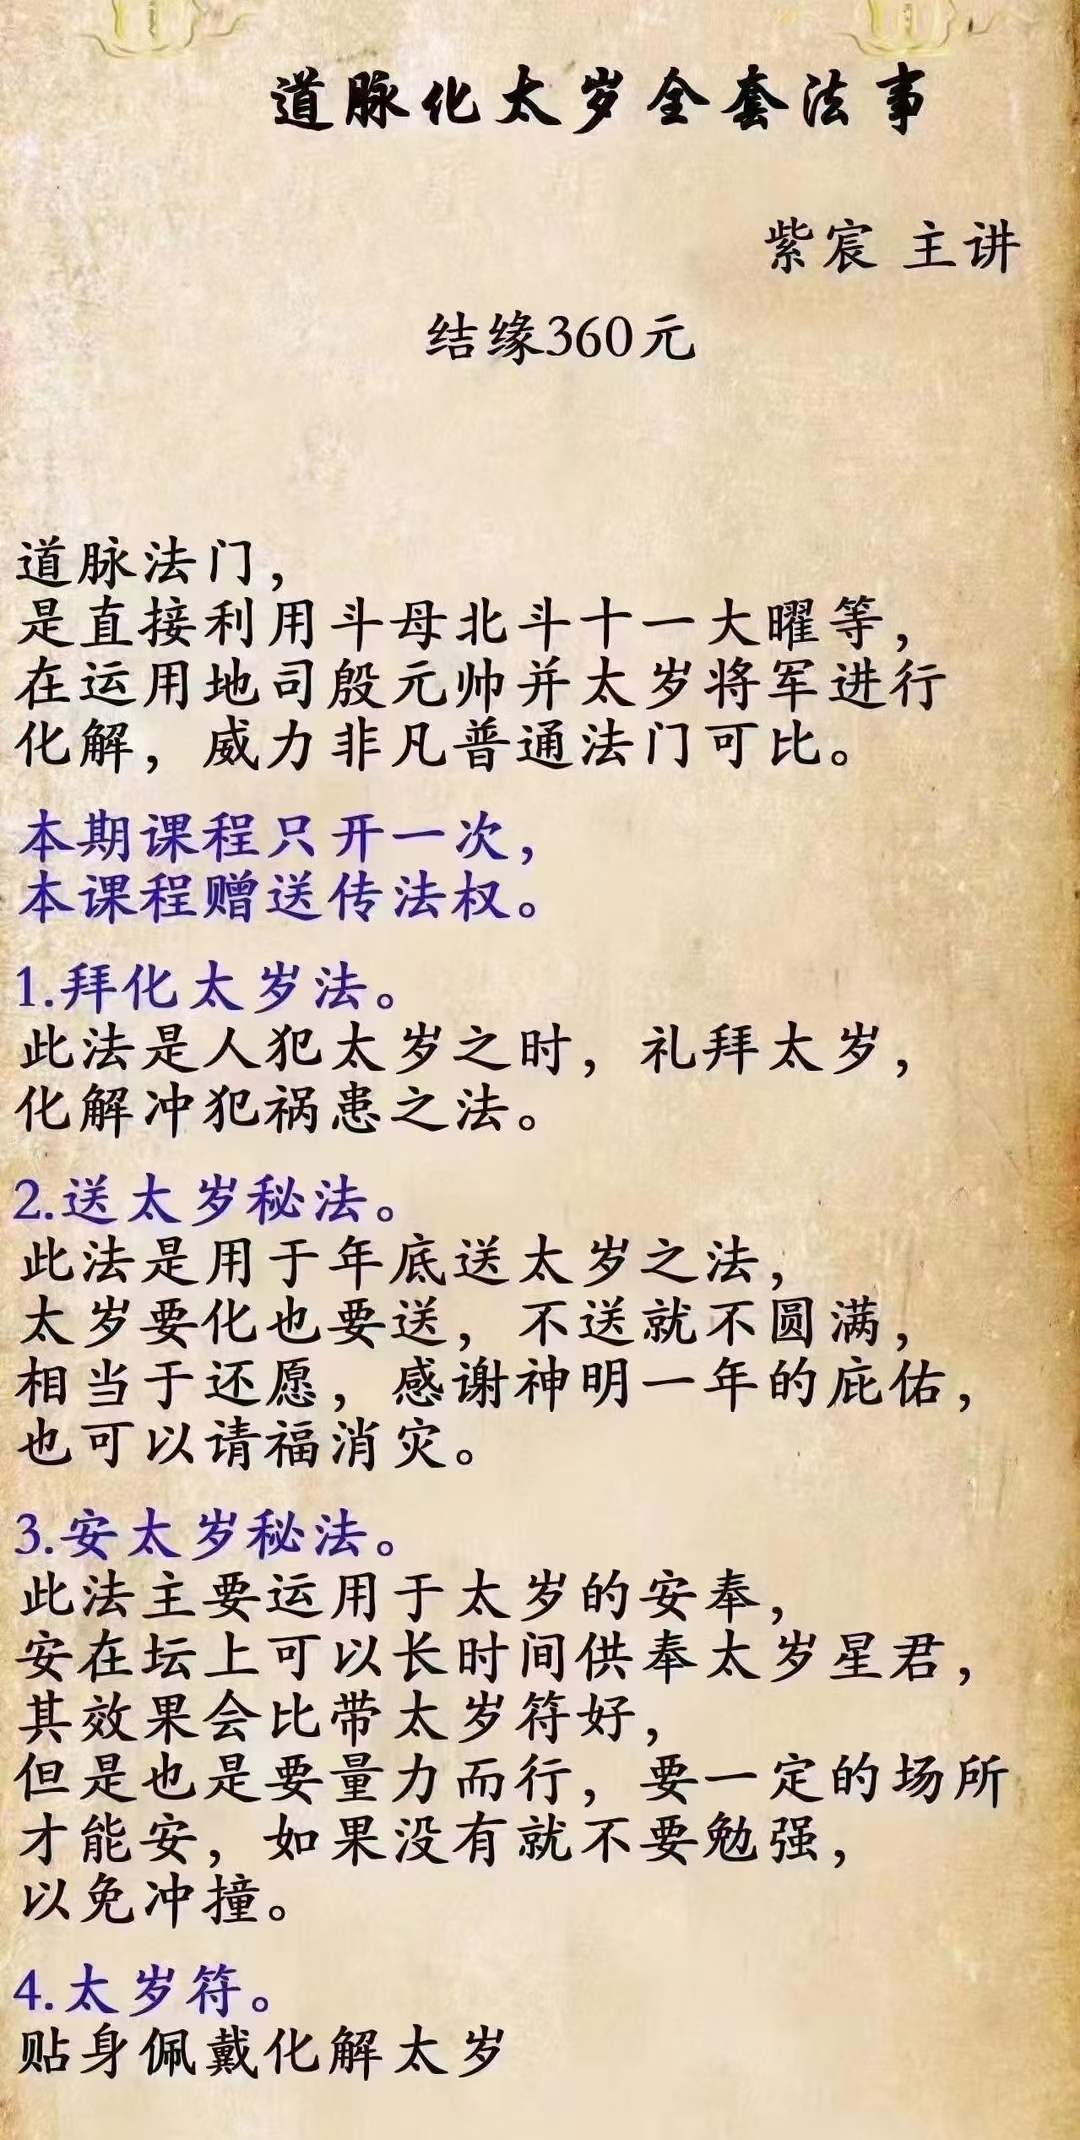 道脉化太岁全套法事
紫宸 主讲
结缘360元
道脉法门，
是直接利用斗母北斗十一大曜等，
在运用地司殷元帅并太岁将军进行
化解，威力非凡普通法门可比。
本期课程只开一次，
本课程赠送传法权。
1.拜化太岁法。
此法是人犯太岁之时，礼拜太岁，
化解冲犯祸患之法。
2.送太岁秘法。
此法是用于年底送太岁之法，
太岁要化也要送，不送就不圆满，
相当于还愿，感谢神明一年的庇佑，
也可以请福消灾。
3.安太岁秘法。
此法主要运用于太岁的安奉，
安在坛上可以长时间供奉太岁星君，
其效果会比带太岁符好，
但是也是要量力而行，要一定的场所
才能安，如果没有就不要勉强，
以免冲撞。
4.太岁符。
贴身佩戴化解太岁